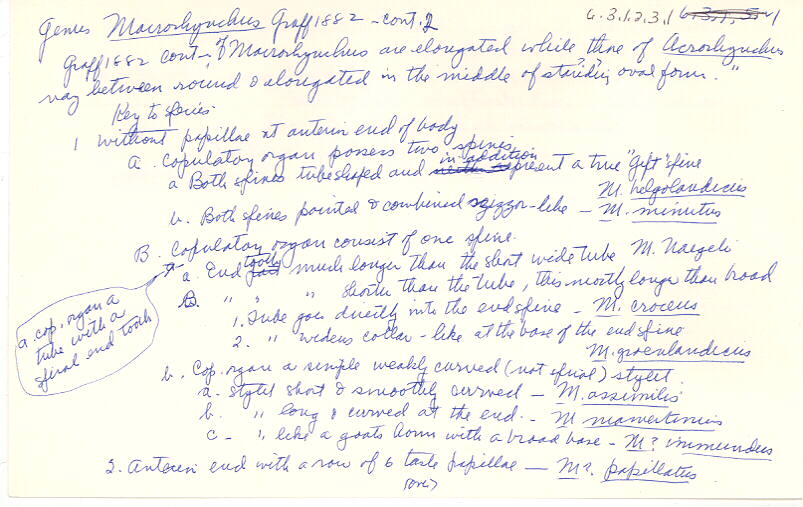 Genus Macrorhynchus Graff 1882 - cont. 2
6.3.1.2.3.1
Graff 1882 cont - of Macrorhynchus are elongated while those of Acrorhynchus
vary between round & elongated in the middle of standing oval form."
Key to species
1 Without papillae at anterior end of body
A. Copulatory organ possess two spines
a Both spines tube shaped and in addition present a true "gift" spine
M. helgolandicus
b. Both spines pointed & combined scizzor-like - M. minutus
B. Copulatory organ consist of one spine.
a. cop. organ a
tube with a
spiral end tooth
a. End tooth much longer than the short wide tube M. Naegeli
B. " " " shorter than the tube, this mostly longer than broad
1. Tube goes directly into the endspine - M. croceus
2. " widens collar-like at the base of the end spine
M. groenlandicus
b. Cop. organ a simple weakly curved (not spiral) stylet
a. stylet short & smoothly curved - M. assimilis
b. " long & curved at the end. - M mamertinus
c - " like a goats horn with a broad base - M? immundus
2. Anterior end with a row of 6 taste papillae - M?. papillatus
(over)